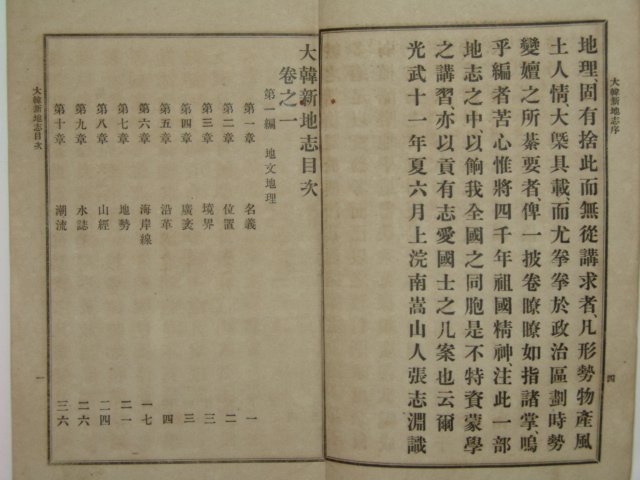 大韓新地志序
地理、固有捨此而無從講求者、凡形勢物產風
土人情、大槩具載、而尤拳拳於政治區劃時勢
變嬗之所綦要者、俾一披卷瞭瞭如指諸掌、嗚
乎編者苦心惟將四千年祖國精神、注此一部
地志之中、以餉我全國之同胞是不特資蒙學
之講習、亦以貢有志愛國士之几案也云爾
光武十一年夏六月上浣南嵩山人張志淵識
四
大韓新地志目次
卷之一
第一編 地文地理
第一章 名義 一
第二章 位置 二
第三章 境界 三
第四章 廣袤 三
第五章 沿革 四
第六章 海岸線 一七
第七章 地勢 二一
第八章 山經 二四
第九章 水誌 二六
第十章 潮流 三六
大韓新地志目次
一